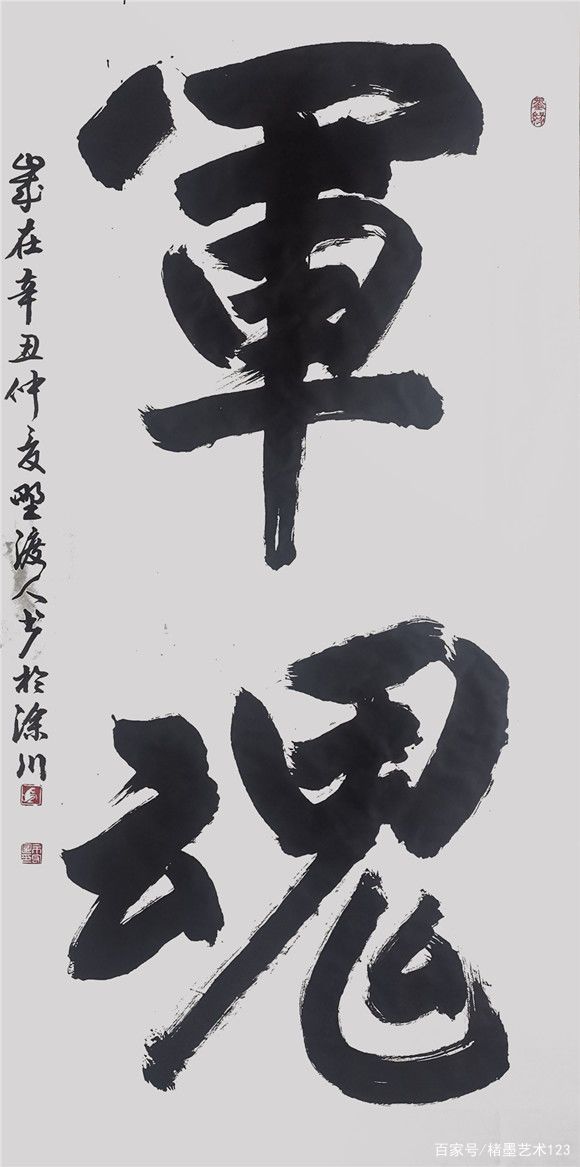 軍魂
歲在辛丑仲夏野渡人书於滁川
百家号/楮墨艺术123